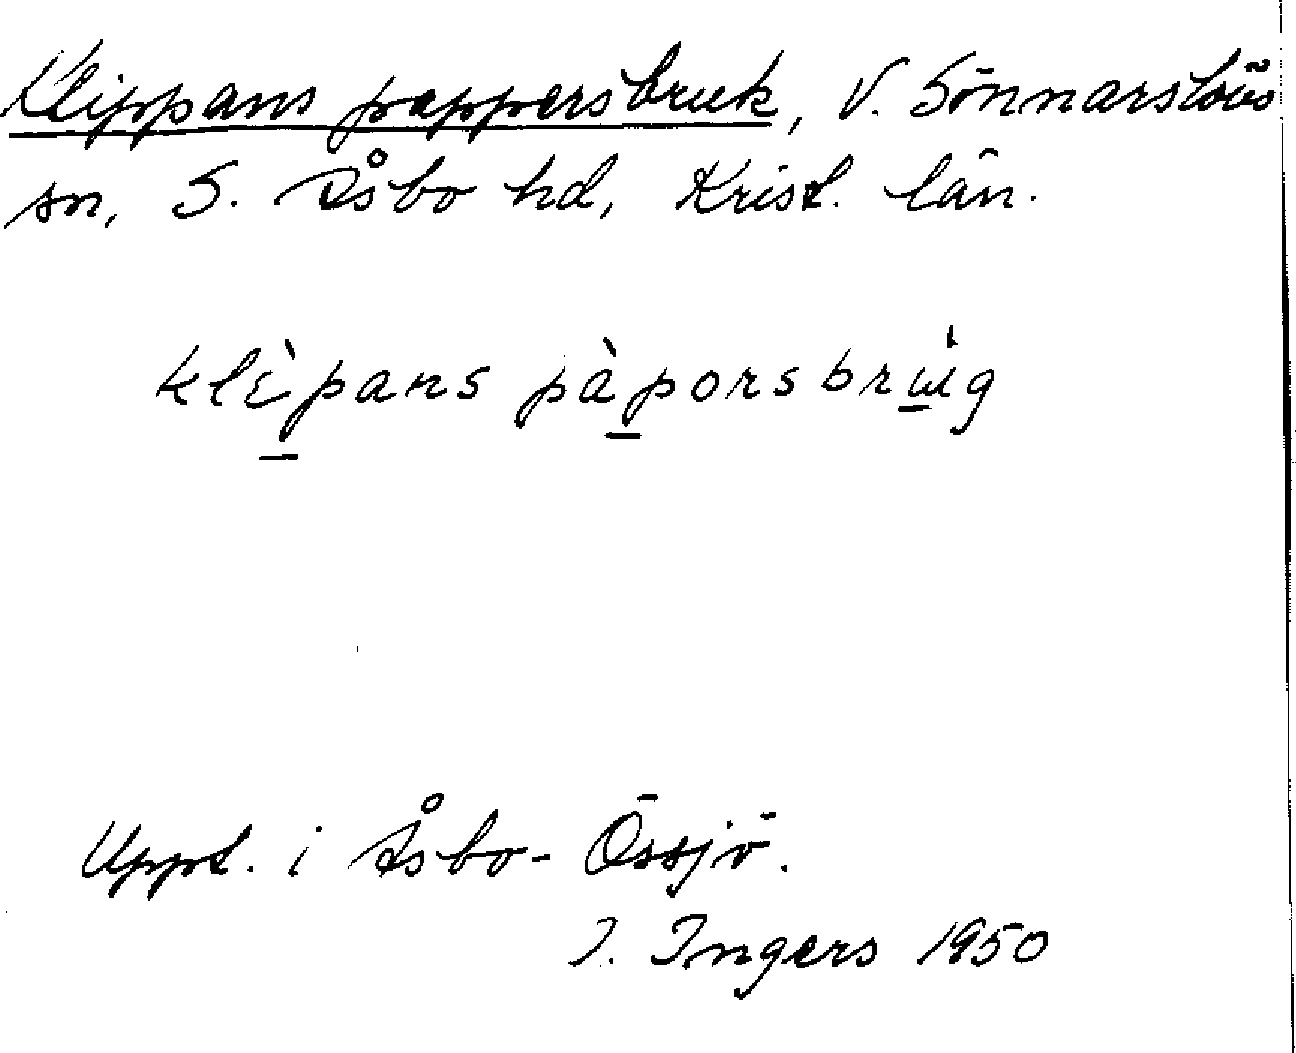 Klippans pappersbruk, V. Sönnarslövs
sn, S. Åsbo hd, Krist. län.
klὲp̱ans pàp̱orsbrɯ̱̍g
Uppt. i Åsbo-Össjö.
I. Ingers 1950